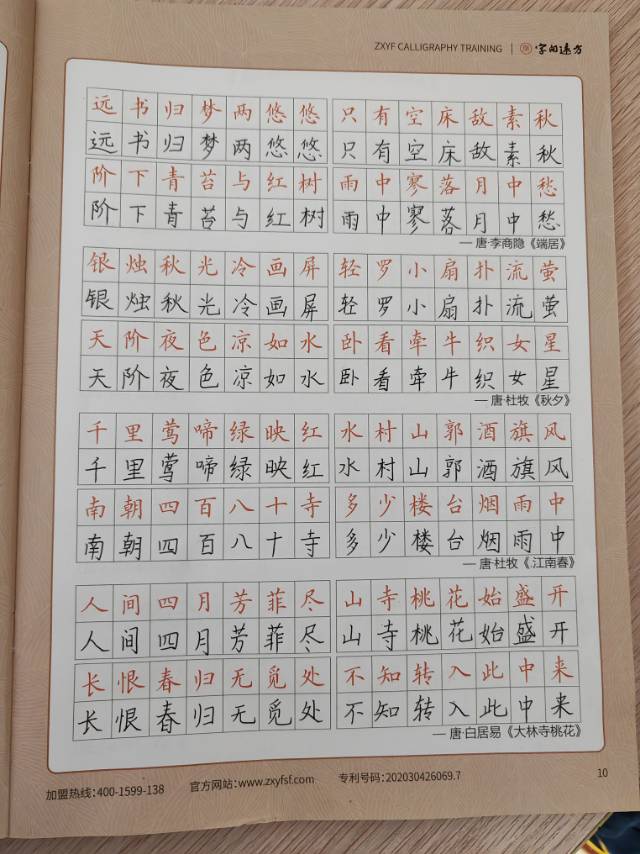 ZXYF CALLIGRAPHY TRAINING | 字雨远方
远书归梦两悠悠 只有空床敌素秋
远书归梦两悠悠 只有空床敌素秋
阶下青苔与红树 雨中寥落月中愁
阶下青苔与红树 雨中寥落月中愁
— 唐·李商隐《端居》
银烛秋光冷画屏 轻罗小扇扑流萤
银烛秋光冷画屏 轻罗小扇扑流萤
天阶夜色凉如水 卧看牵牛织女星
天阶夜色凉如水 卧看牵牛织女星
— 唐·杜牧《秋夕》
千里莺啼绿映红 水村山郭酒旗风
千里莺啼绿映红 水村山郭酒旗风
南朝四百八十寺 多少楼台烟雨中
南朝四百八十寺 多少楼台烟雨中
— 唐·杜牧《江南春》
人间四月芳菲尽 山寺桃花始盛开
人间四月芳菲尽 山寺桃花始盛开
长恨春归无觅处 不知转入此中来
长恨春归无觅处 不知转入此中来
— 唐·白居易《大林寺桃花》
加盟热线:400-1599-138 官方网站:www.zxyfsf.com 专利号码:202030426069.7 10